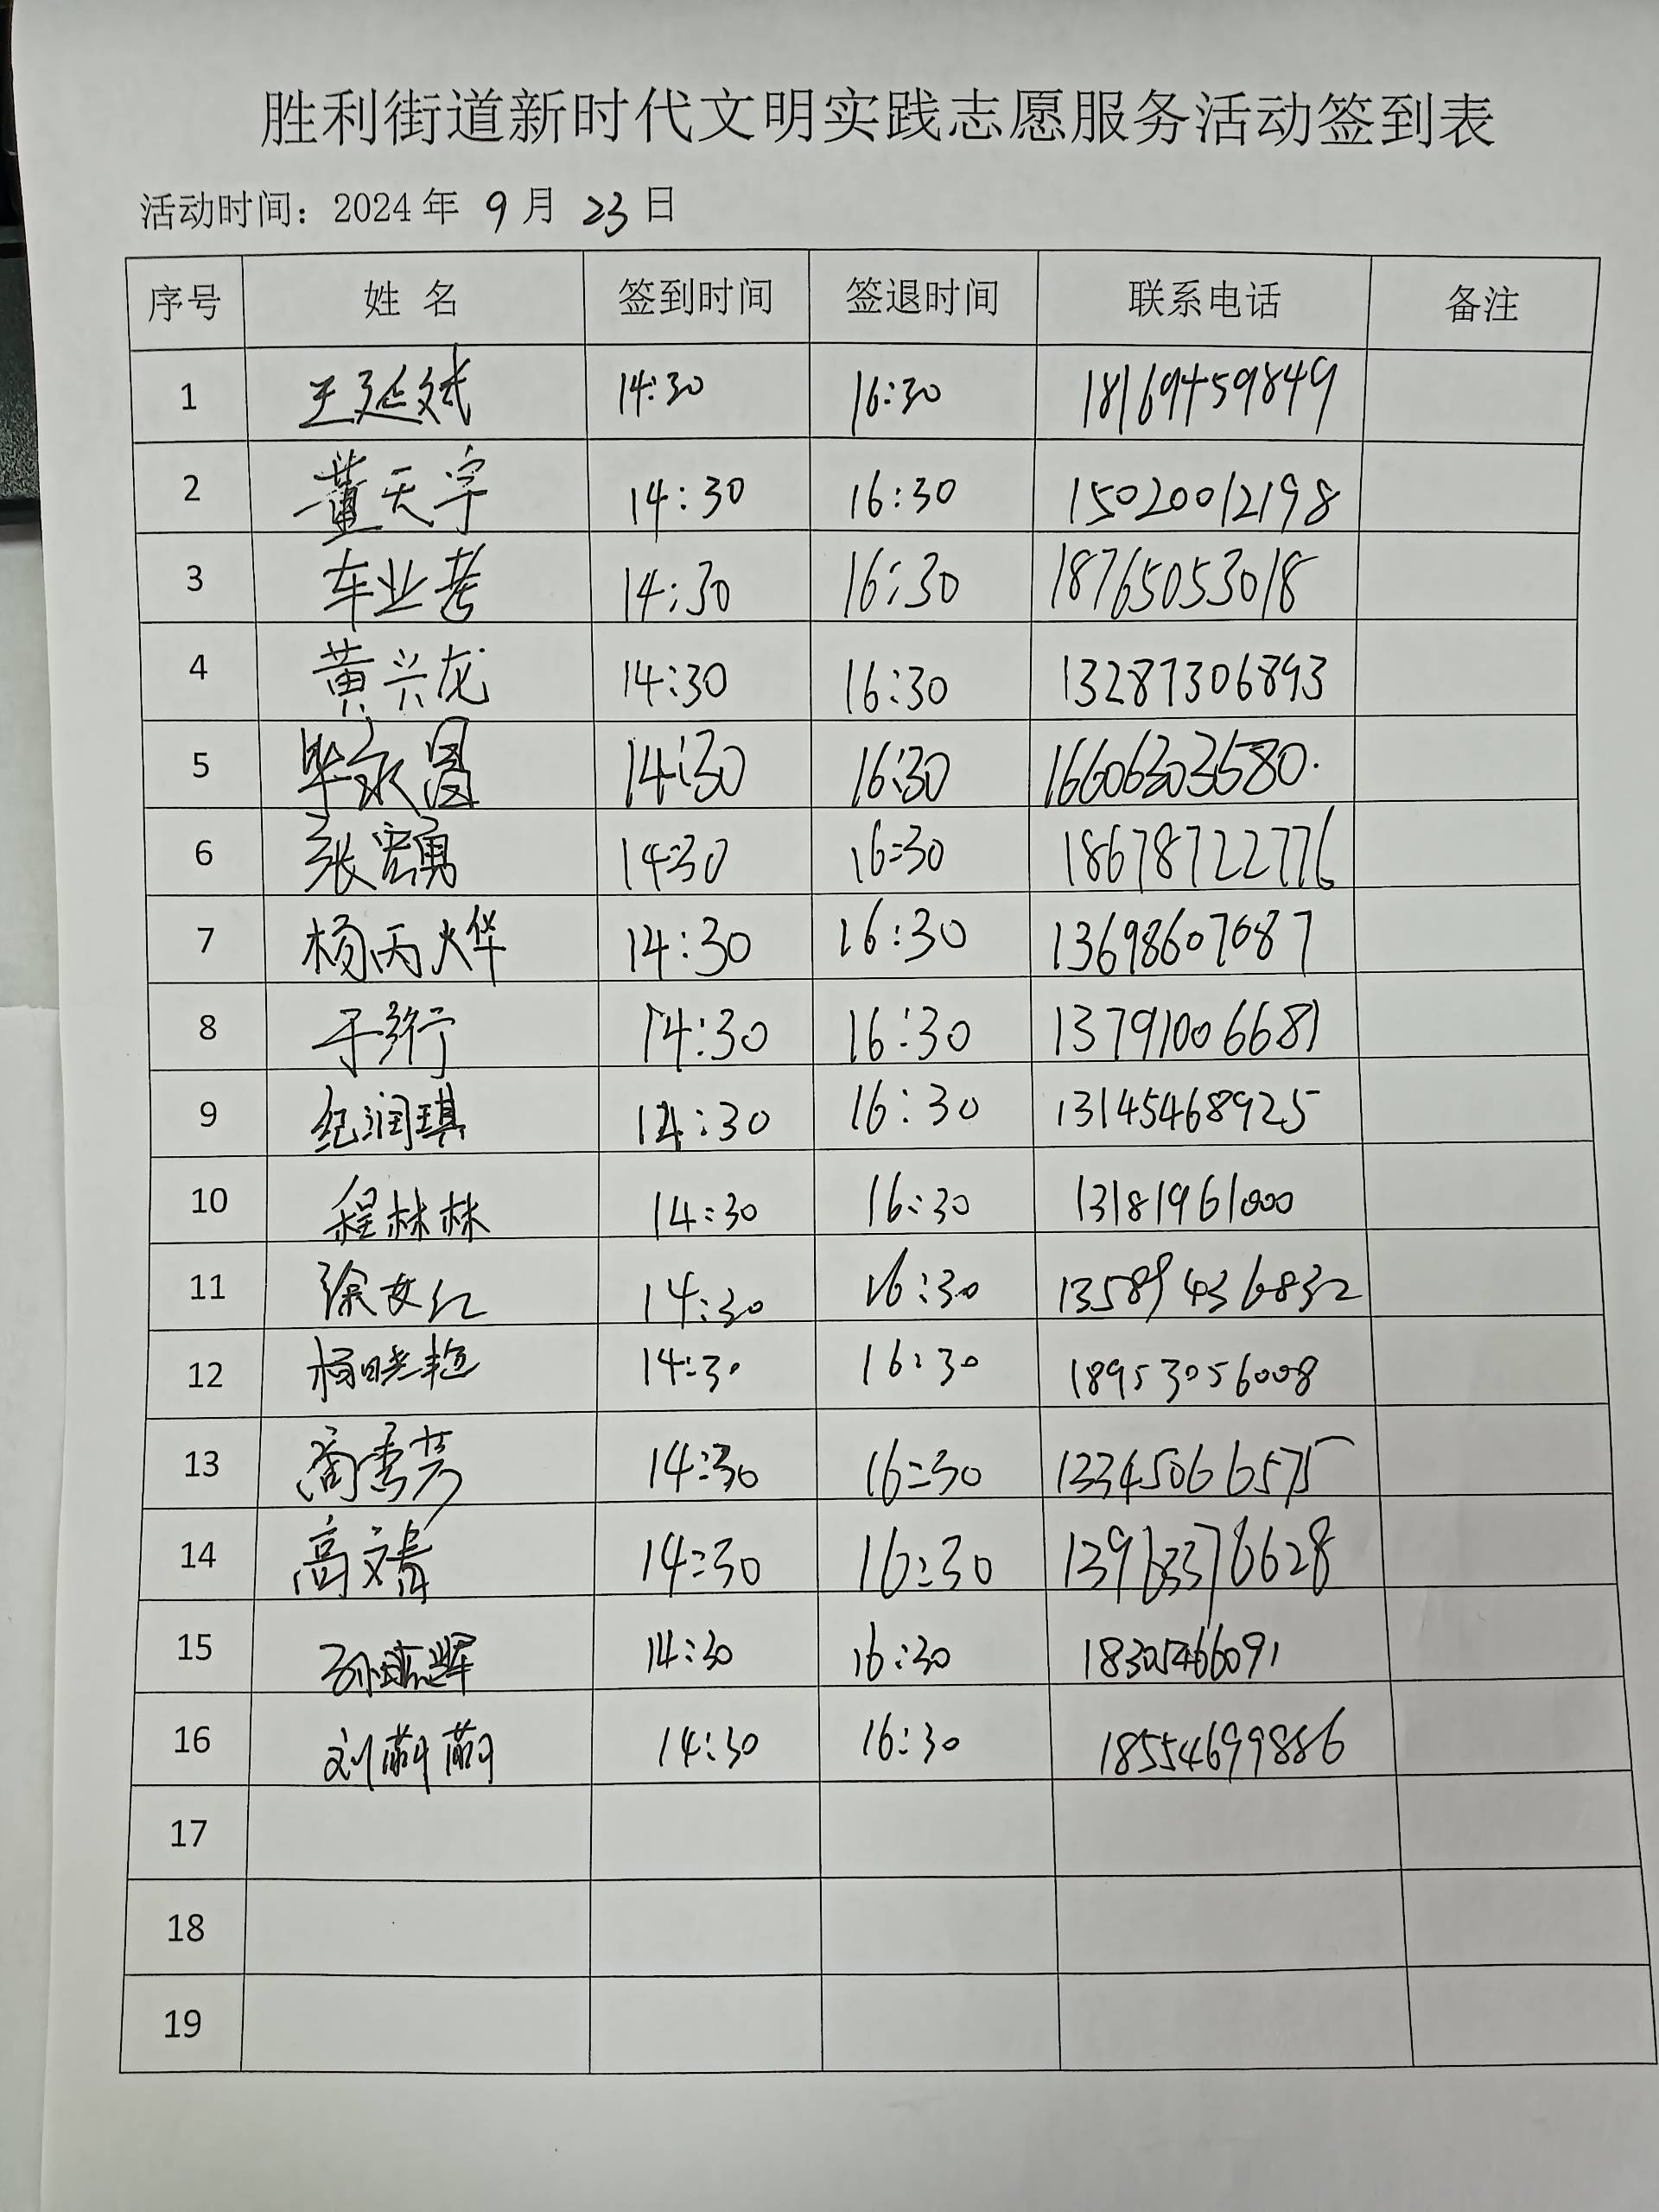 胜利街道新时代文明实践志愿服务活动签到表
活动时间：2024 年 9 月 23 日
序号 姓 名 签到时间 签退时间 联系电话 备注
1 王延斌 14:30 16:30 18169459849
2 董天宇 14:30 16:30 15020012198
3 车业考 14:30 16:30 18765053018
4 黄兴龙 14:30 16:30 13287306893
5 毕永昌 14:30 16:30 16606303580.
6 张宏勇 14:30 16:30 18678722776
7 杨丙烨 14:30 16:30 13698607087
8 于衍 14:30 16:30 13791006681
9 纪润琪 14:30 16:30 13145468925
10 程林林 14:30 16:30 13181961000
11 徐女红 14:30 16:30 13589436832
12 杨晓艳 14:30 16:30 18953056008
13 商秀芳 14:30 16:30 13345066575
14 高文青 14:30 16:30 13963376628
15 14:30 16:30 18305466091
16 刘萌萌 14:30 16:30 18554699886
17
18
19